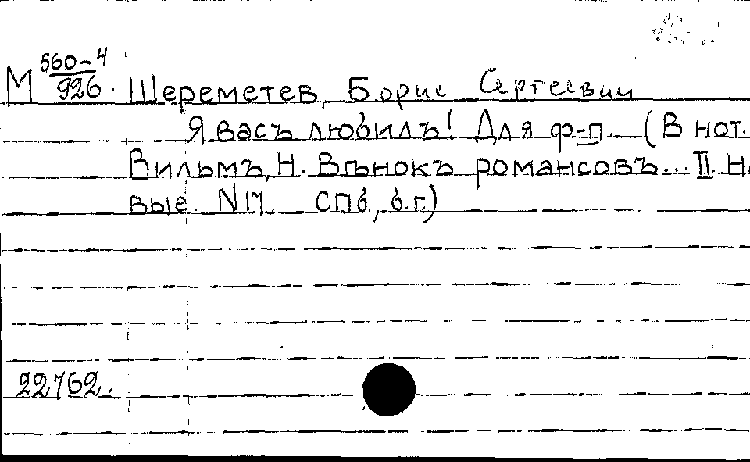 М 560-4/926. Шереметев, Борис Сергеевич
Я васъ любилъ! Для ф-п. (В нот.
Вильмъ, Н. Вѣнокъ романсовъ... II. Н.
вые. N 17. СПб, б.г.)
22762.